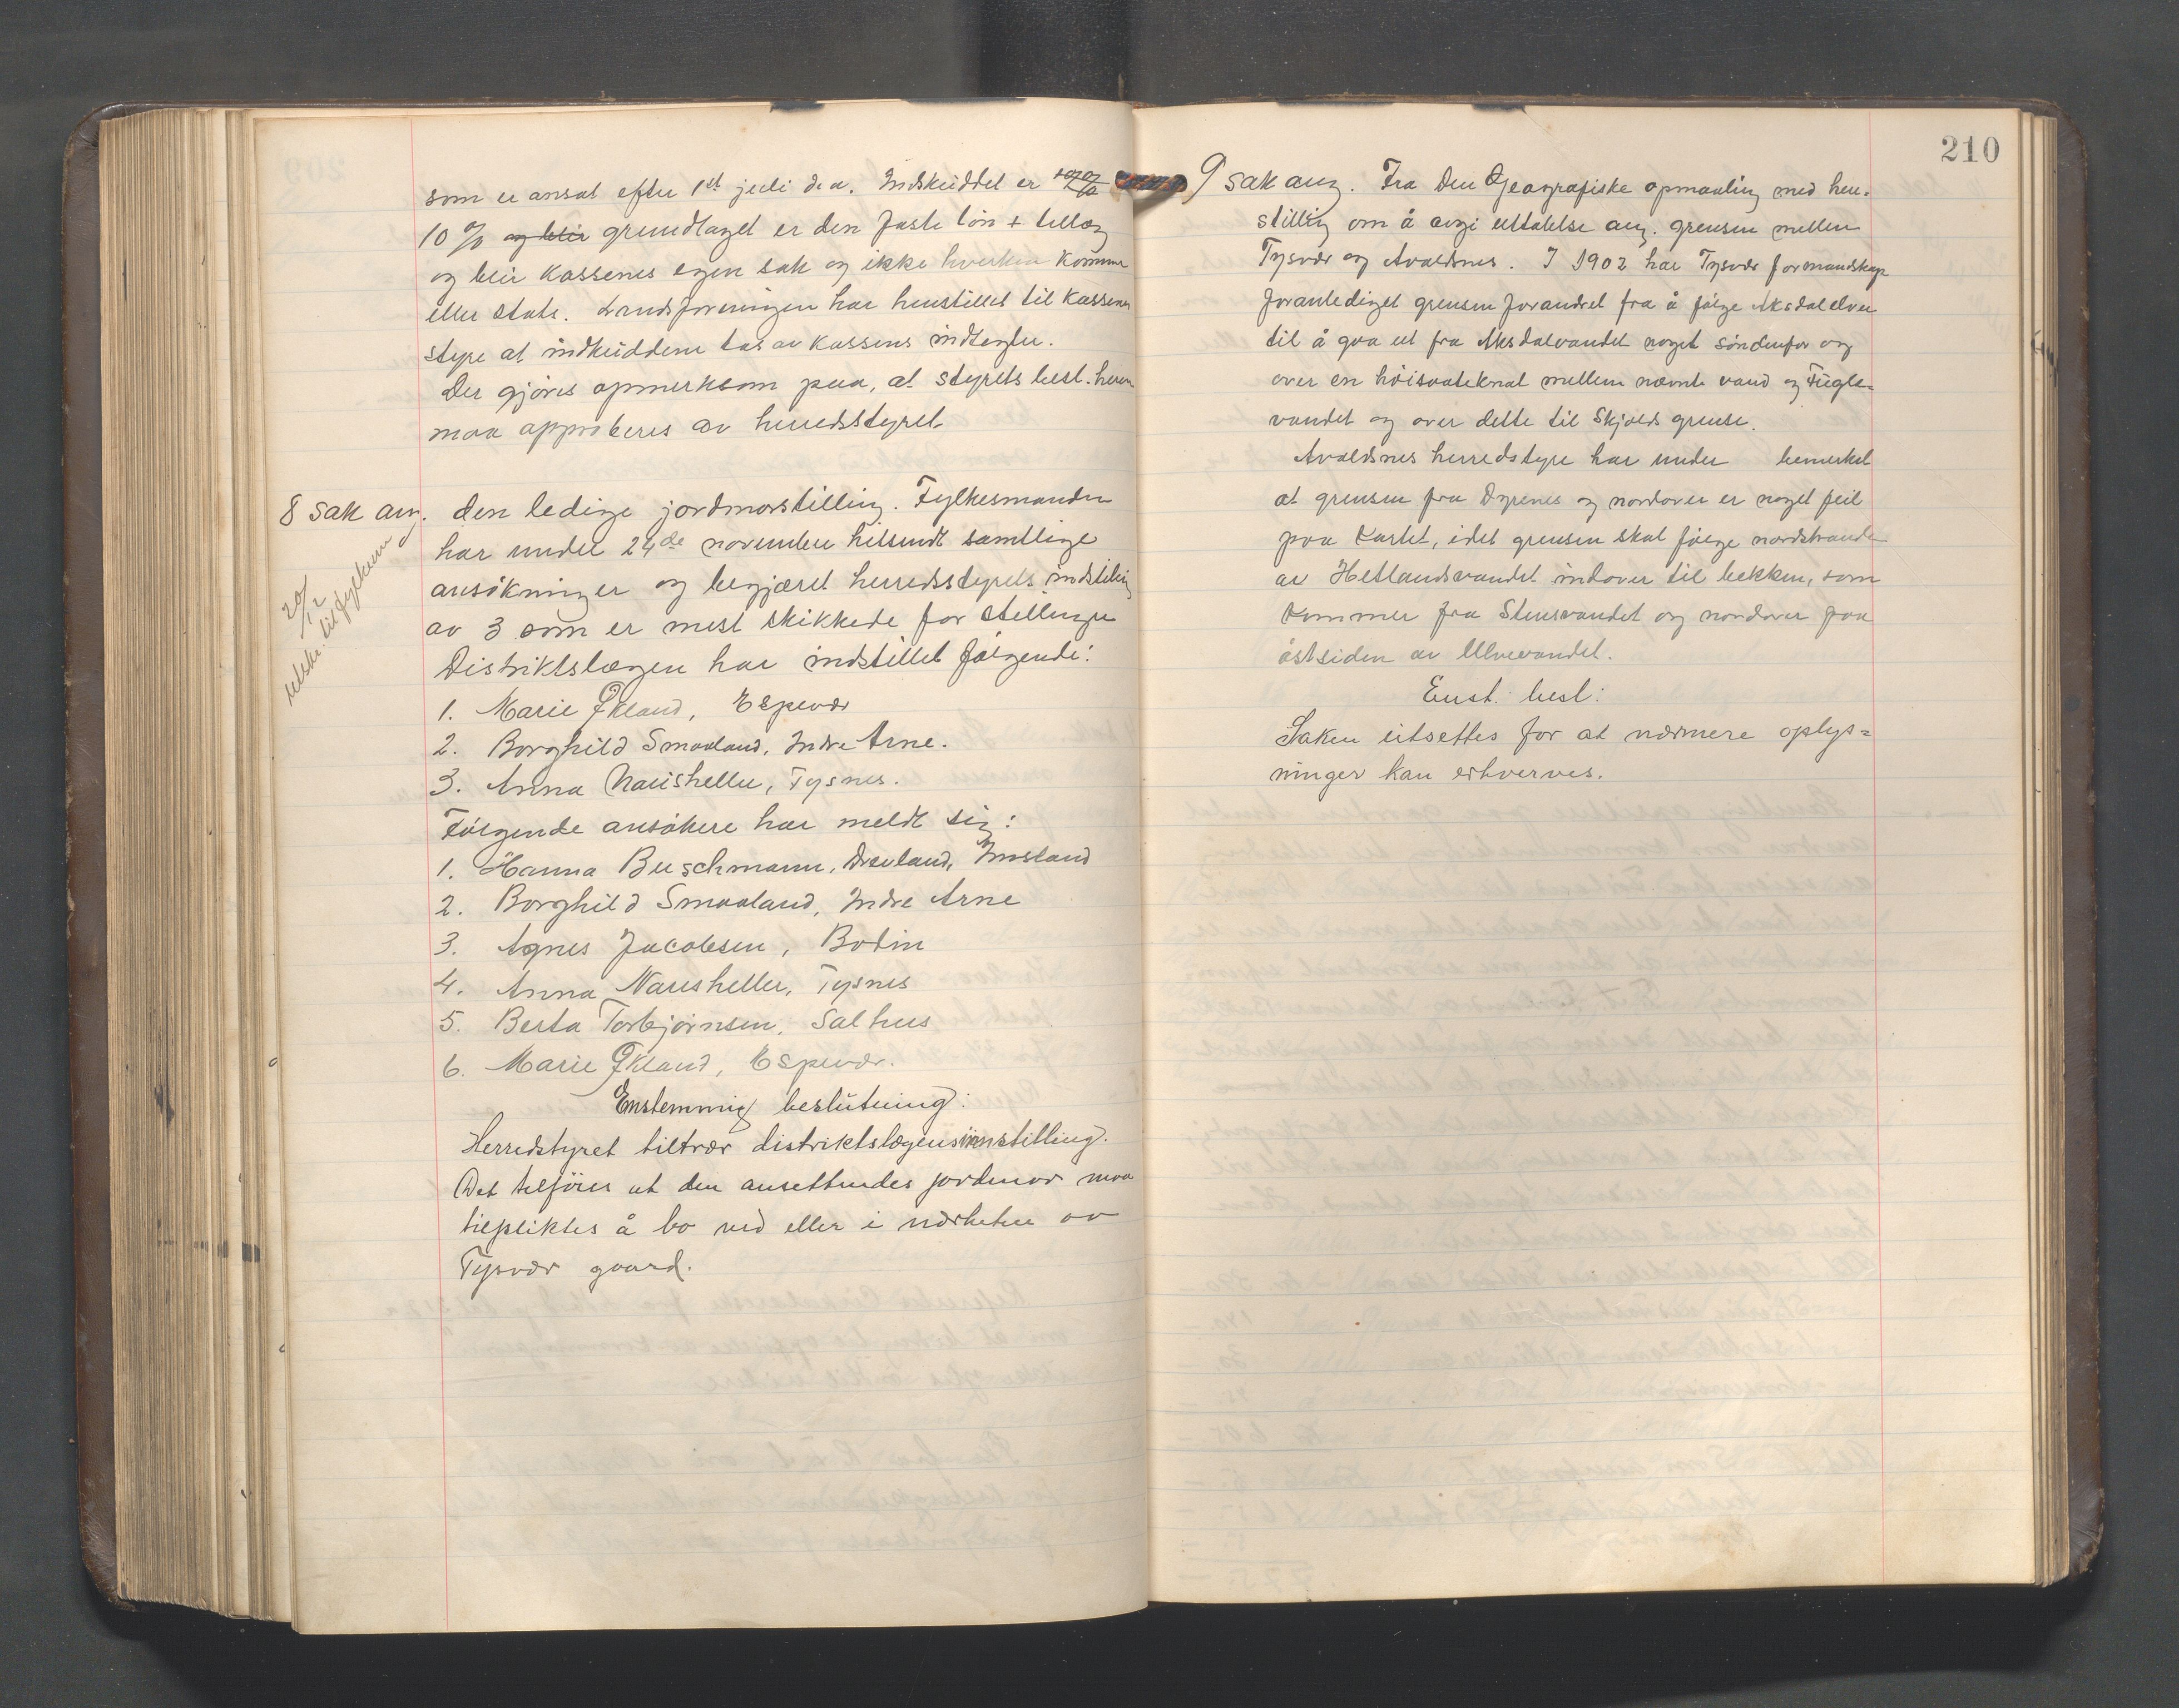 som er ansat efter 1st juli d. a. Indskuddet er
10 % og blir grundlaget er den faste løn + tillæg
og blir kassenes egen sak og ikke hverken kommune
eller stats. Landsforeningen har henstillet til kassenes
styre at indkuddene tas av kassens indtegter.
Der gjøres opmerksom paa, at styrets besl. herom
maa approberes av herredsstyret
8 sak ang. den ledige jordmorstilling. Fylkesmanden
har under 24de november tilsendt samtlige
ansøkninger og begjæret herredsstyrets indstilling
av 3 som er mest skikkede for stillingen
Distriktslægen har indstillet følgende:
1. Marie Økland, Espevær
2. Borghild Smaaland, Indre Arne.
3. Anna Nausheller, Tysnes.
Følgende ansøkere har meldt sig:
1. Hanna Buschmann, Imsland
2. Borghild Smaaland, Indre Arne
3. Agnes Jacobsen, Bodin
4. Anna Nausheller, Tysnes
5. Berta Torbjørnsen, Salhus
6. Marie Økland, Espevær.
Enstemmig beslutning:
Herredstyret tiltrær distriktslægens innstilling.
Det tilføies at den ansettendes jordmor maa
tilpliktes å bo ved eller i nærheten av
Tysvær gaard.
20/12
utskr. til fylkesm
210
9 sak ang. Fra Den Geografiske opmaaling med hen-
stilling om å avgi uttalelse ang. grensen mellem
Tysvær og Avaldsnes. I 1902 har Tysvær formandskap
foranlediget grensen forandret fra å følge Aksdalelven
til å gaa ut fra Aksdalvandet noget søndenfor og
over en høisvateknat mellem nævnte vand og Fugle-
vandet og over dette til Skjolds grense.
Avaldsnes herredstyre har under bemerket
at grensen fra Dyrenes og nordover er noget feil
paa kartet, idet grensen skal følge nordstranden
av Hetlandsvandet indover til bekken, som
kommer fra Stensvandet og nordover paa
østsiden av Ulvevandet.
Enst. besl:
Saken utsettes for at nærmere oplys-
ninger kan erhverves.